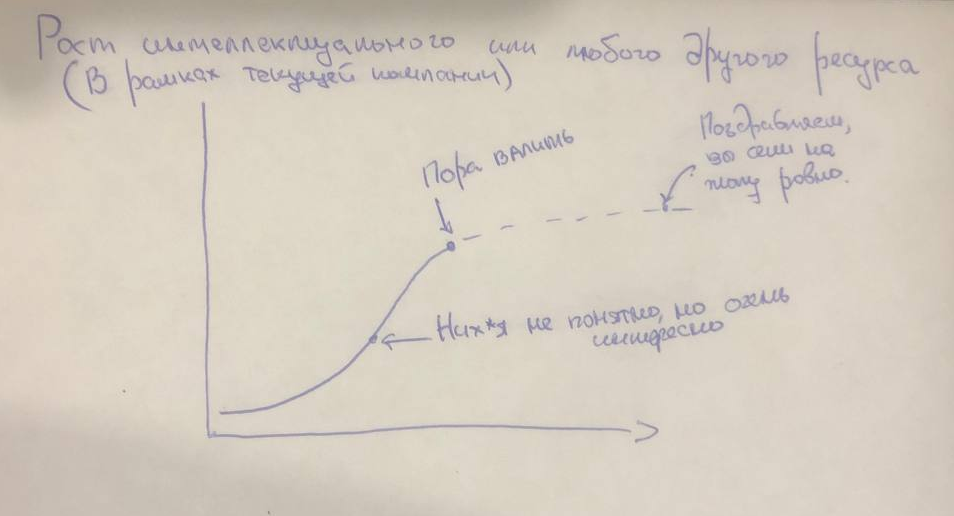 Рост интеллектуального или любого другого ресурса
(В рамках текущей компании)
Пора валить
Поздравляем,
вы сели на
жопу ровно.
Них*я не понятно, но очень
интересно